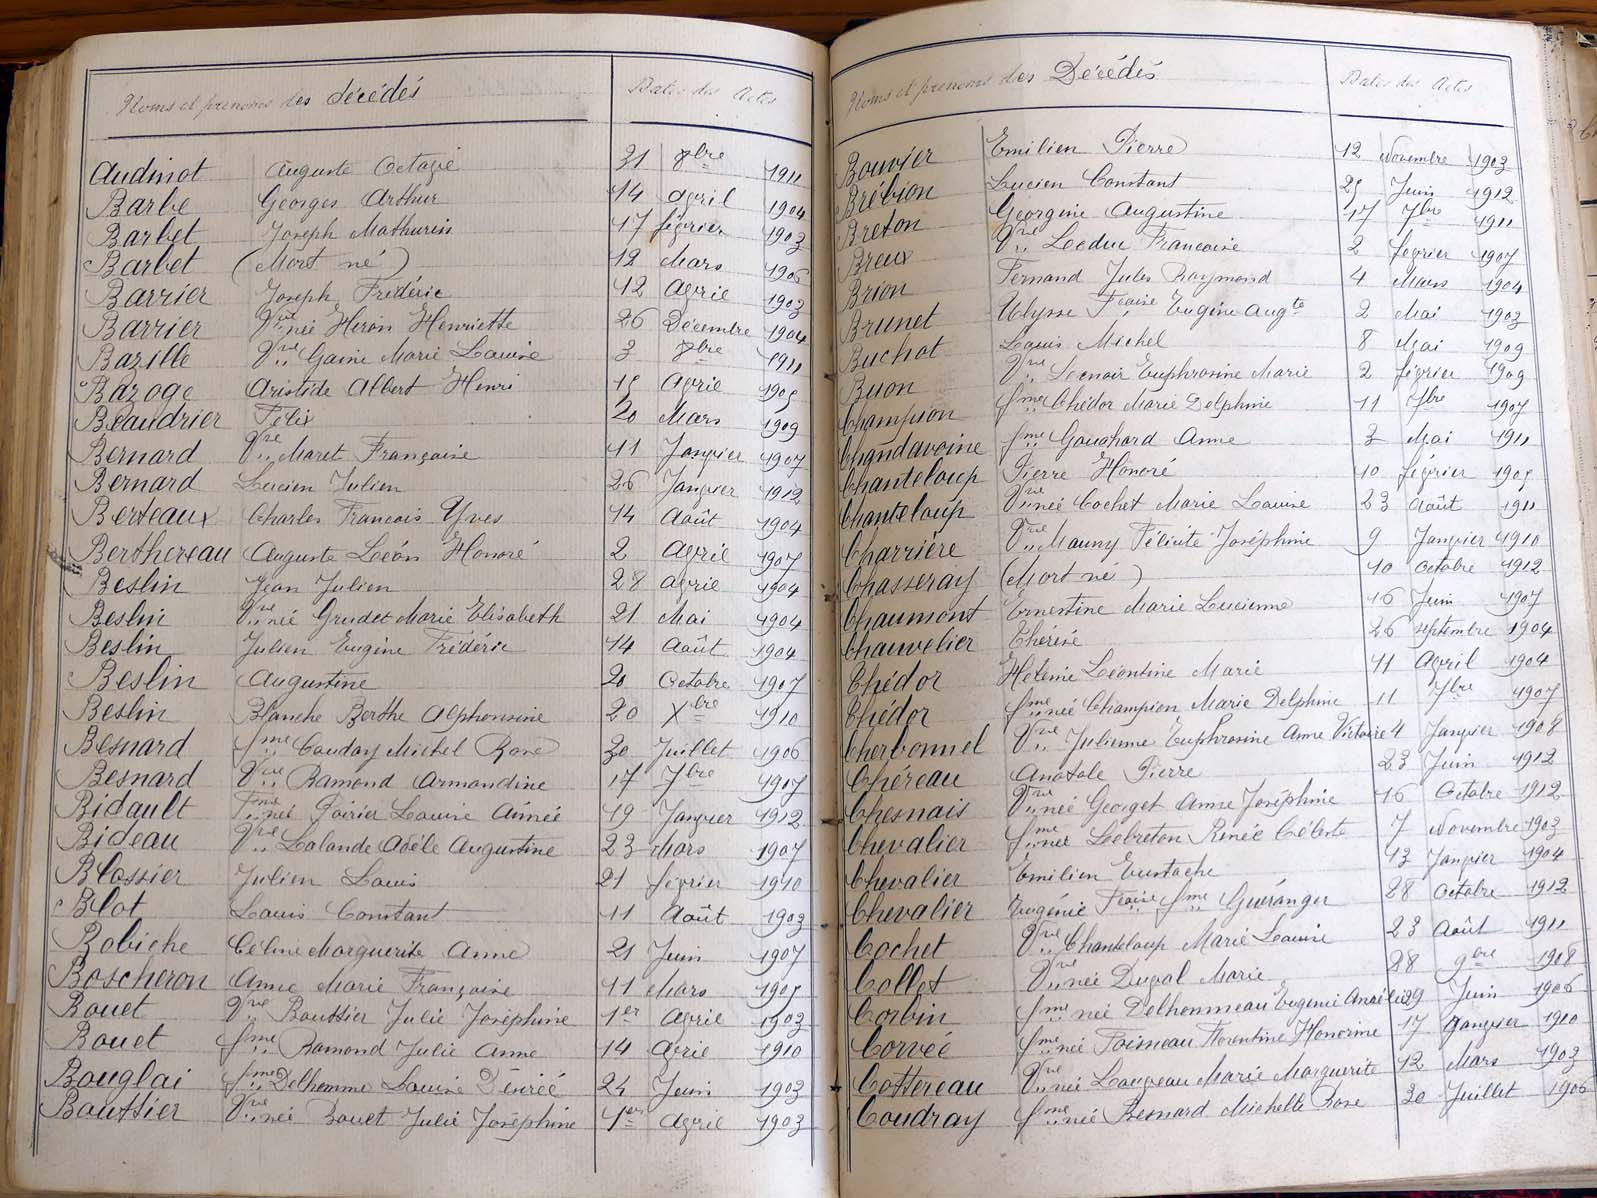 Noms et prénoms des décédés Dates des Actes
Audinot Auguste Octave 31 8bre 1911
Barbe Georges Arthur 14 avril 1904
Barbet Joseph Mathurin 17 février 1903
Barbet (Mort né) 12 Mars 1906
Barrier Joseph Frédéric 12 avril 1903
Barrier Vve née Héron Henriette 26 Décembre 1904
Bazille Vve Gaini Marie Louise 3 8bre 1911
Bazoge Aristide Albert Henri 15 avril 1905
Beaudrier Félix 20 Mars 1909
Bernard Vve Maret Françoise 11 Janvier 1907
Bernard Lucien Julien 26 Janvier 1912
Berteaux Charles François Yves 14 Août 1904
Berthereau Auguste Léon Honoré 2 avril 1907
Beslin Jean Julien 28 avril 1904
Beslin Vve née Grudet Marie Elisabeth 21 Mai 1904
Beslin Julien Eugène Frédéric 14 Août 1904
Beslin Augustine 20 Octobre 1907
Beslin Blanche Berthe Alphonsine 20 Xbre 1910
Besnard fme Couday Michel Rose 30 Juillet 1906
Besnard Vve Ramond Armandine 17 7bre 1907
Bidault Fme née Poirier Louise Aimée 19 Janvier 1912
Bideau Vve Lalande Adèle Augustine 23 Mars 1907
Blossier Julien Louis 21 février 1910
Blot Louis Constant 11 Août 1903
Bobiche Céline Marguerite Anne 21 Juin 1907
Boscheron Anne Marie Françoise 11 Mars 1905
Bouet Vve Bouttier Julie Joséphine 1er avril 1903
Bouet fme Ramond Julie Anne 14 avril 1910
Bouglai fme Delhomme Louise Désirée 24 Juin 1903
Bouttier Vve née Bouet Julie Joséphine 1er avril 1903
Noms et prénoms des Décédés Dates des Actes
Bouvier Emilien Pierre 12 Novembre 1903
Brébion Lucien Constant 25 Juin 1912
Breton Georgine Augustine 17 7bre 1911
Breux Vve Leduc Francoise 2 février 1907
Brion Fernand Jules Raymond 4 Mars 1904
Brunet Ulysse Fçoise Eugène Augte 2 Mai 1903
Buchot Louis Michel 8 Mai 1909
Buon Vve Lenoir Euphrosine Marie 2 février 1909
Champion fme Chédor Marie Delphine 11 7bre 1907
Chandavoine fme Gouchard Anne 3 Mai 1911
Chanteloup Pierre Honoré 10 février 1905
Chanteloup Vve née Cochet Marie Louise 23 Août 1911
Charrière Vve Mauny Félicité Joséphine 9 Janvier 1910
Chasseray (Mort né) 10 octobre 1912
Chaumont Ernestine Marie Lucienne 16 Juin 1907
Chauvelier Thérèse 26 septembre 1904
Chédor Hélénie Léontine Marie 11 Avril 1904
Chédor fme née Champion Marie Delphine 11 7bre 1907
Cherbonnel Vve Julienne Euphrosine Anne Victoire 4 Janvier 1908
Chéreau Anatole Pierre 23 Juin 1912
Chesnais Vve née Georget Anne Joséphine 16 Octobre 1912
Chevalier fme née Lebreton Renée Céleste 7 Novembre 1903
Chevalier Emilien Eustache 13 Janvier 1904
Chevalier Eugénie Fçoise fme Guéranger 28 Octobre 1912
Cochet Vve Chanteloup Marie Louise 23 Août 1911
Collet Vve née Duval Marie 28 9bre 1908
Corbin fme née Delhommeau Eugenie 29 Juin 1906
Corvée fme née Poisneau Florentine Honorine 17 Janvier 1910
Cottereau Vve née Louveau Marie Marguerite 12 Mars 1903
Coudray fme née Besnard Michelle Rose 30 Juillet 1906